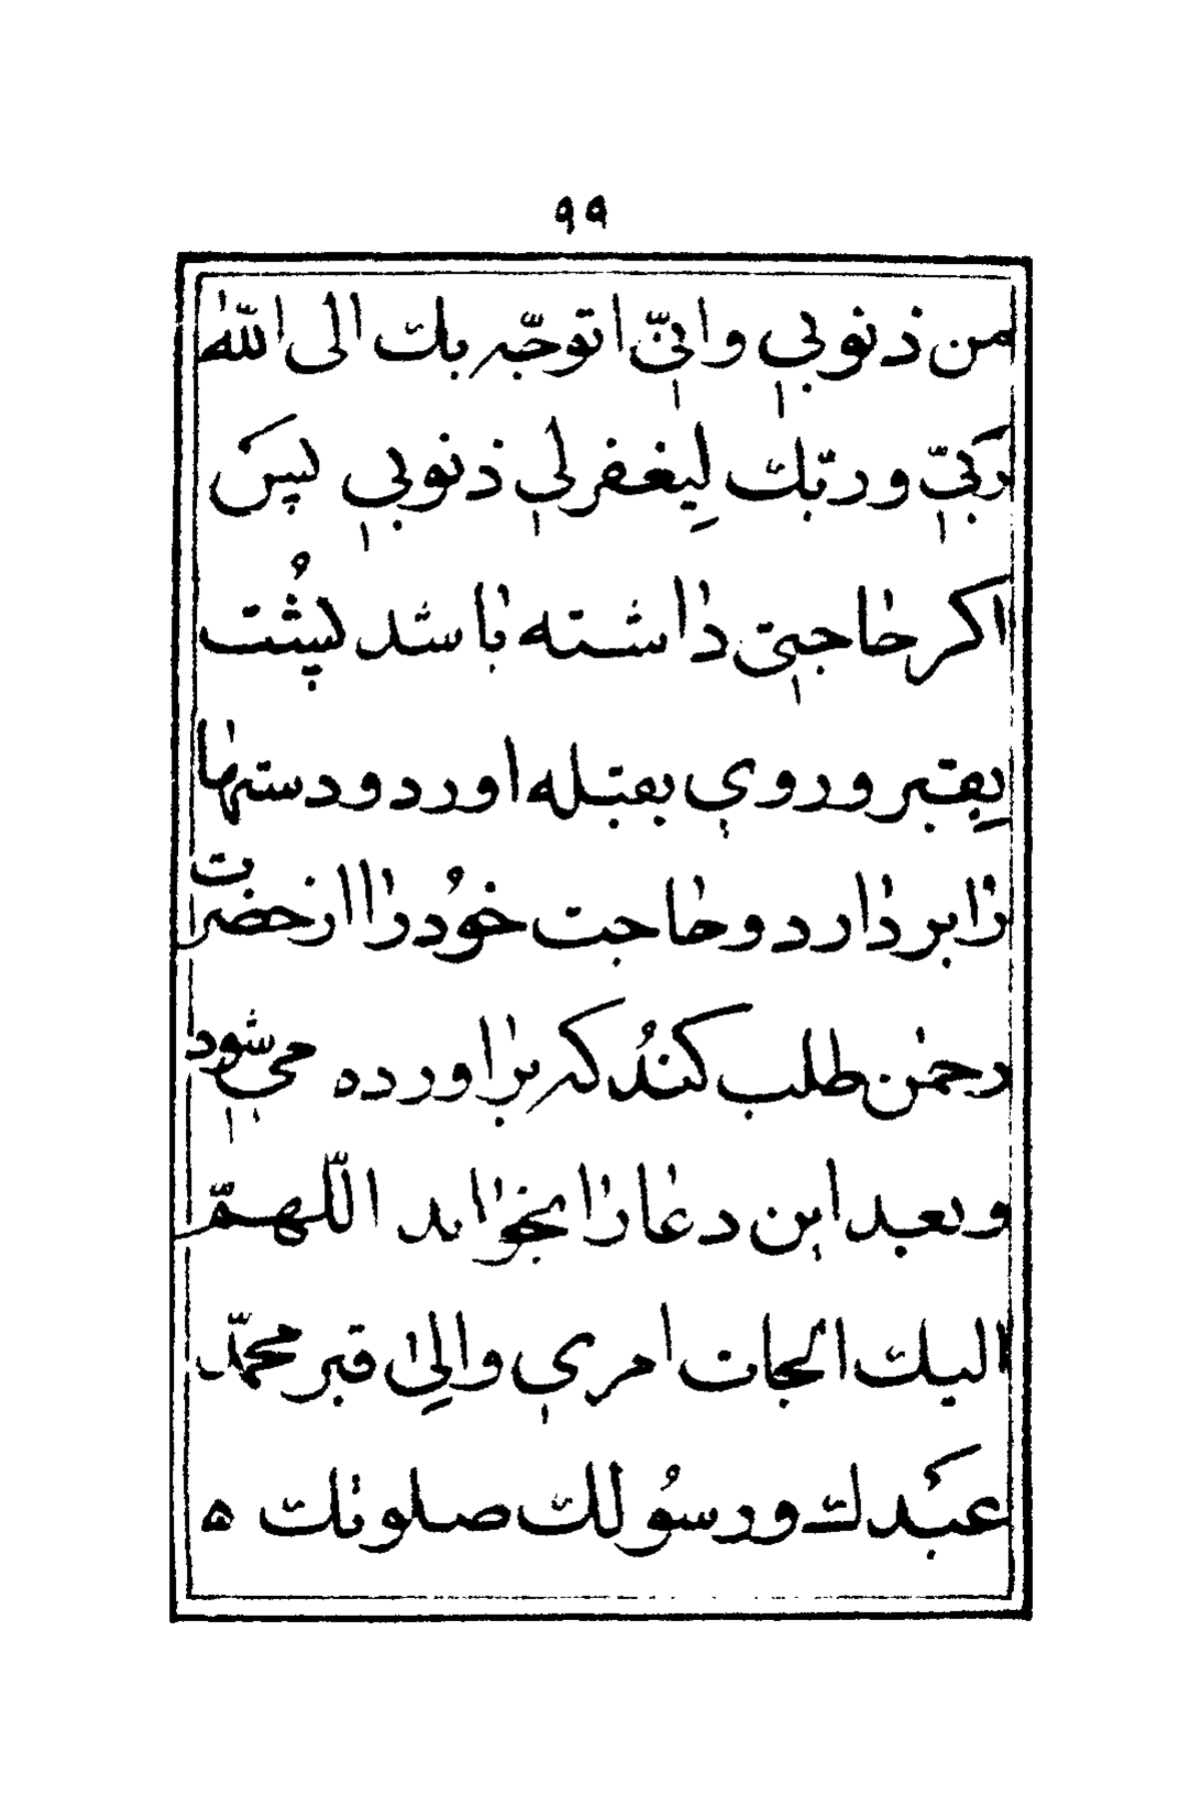 ٩٩
من ذنوبي وانيّ اتوجّه بك الى الله
ربيّ وربّك لِيغفر لي ذنوبي پس
اكر حاجتى داشته باشد پشُت
بِقبر وروي بقبله اورد ودستها
را بر دارد وحاجت خُود را از حضرت
رحمٰن طلب كندُ كه بر اورده مي شود
وبعد اين دعا را بخواند اللّهمّ
اليك الجات امري والِىٰ قبر محمّد
عبدك ورسُولك صلوتك ه